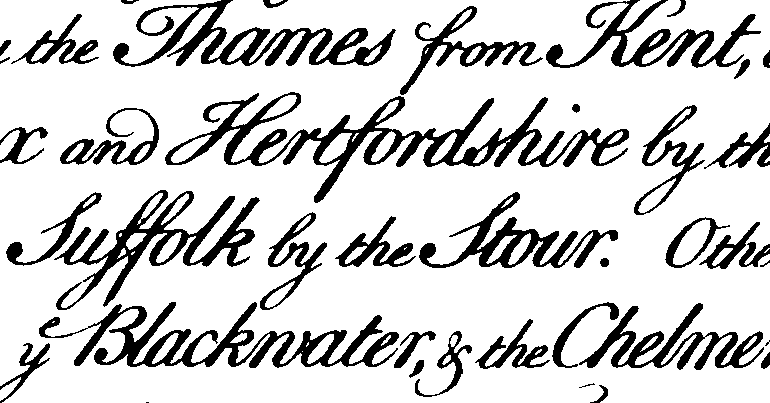 the Thames from Kent,
x and Hertfordshire by th
Suffolk by the Stour. Othe
yͤ Blackwater, & the Chelmer